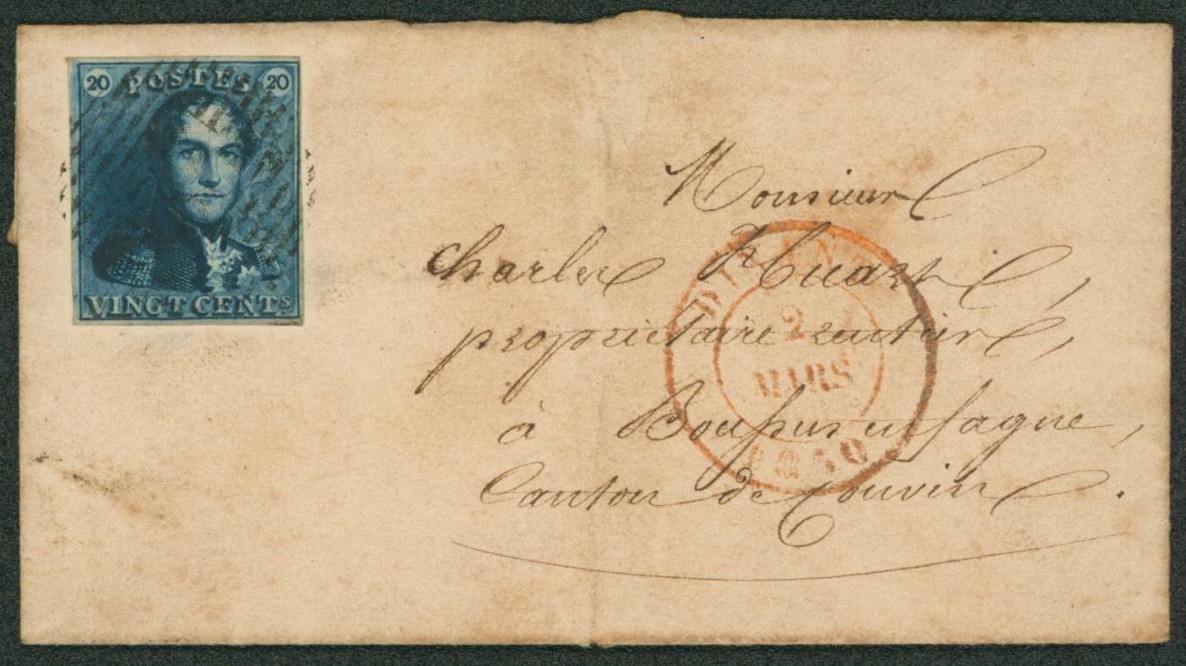 20 POSTES 20
VINGT CENTS
Monsieur
Charles Huart,
propriétaire rentier,
à Boussus en fagne,
Canton de Couvin.
DINANT
2
MARS
1850